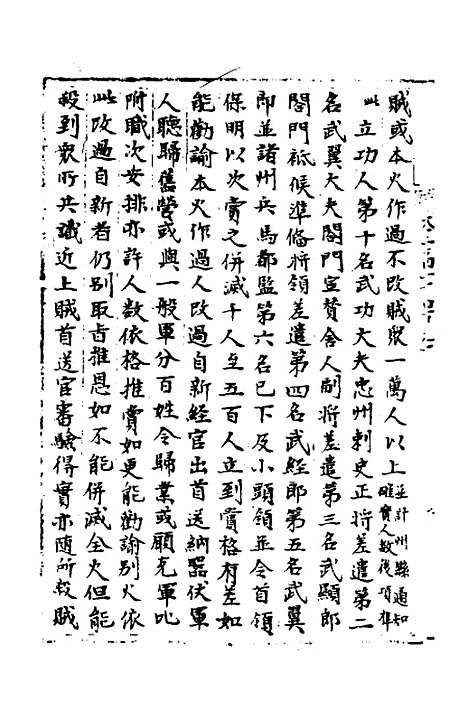 賊或本火作過不改賊眾一萬人以上並計州縣通知確實人數後項準
此立功人第十名武功大夫忠州刺史正將差遣第二
名武翼大夫閤門宣贊舍人副將差遣第三名武顯郎
閤門祗候準備將領差遣第四名武經郎第五名武翼
郎並諸州兵馬都監第六名已下及小頭領並令首領
保明以次賞之併滅千人至五百人立到賞格有差如
能勸諭本火作過人改過自新經官出首送納器伏軍
人聽歸舊營或與一般軍分百姓令歸業或願充軍叱
附職次安排亦許人數依格推賞如更能勸諭別火依
此改過自新者仍別取旨推恩如不能併滅全火但能
殺到眾所共識近上賊首送官審驗得實亦隨所殺賊